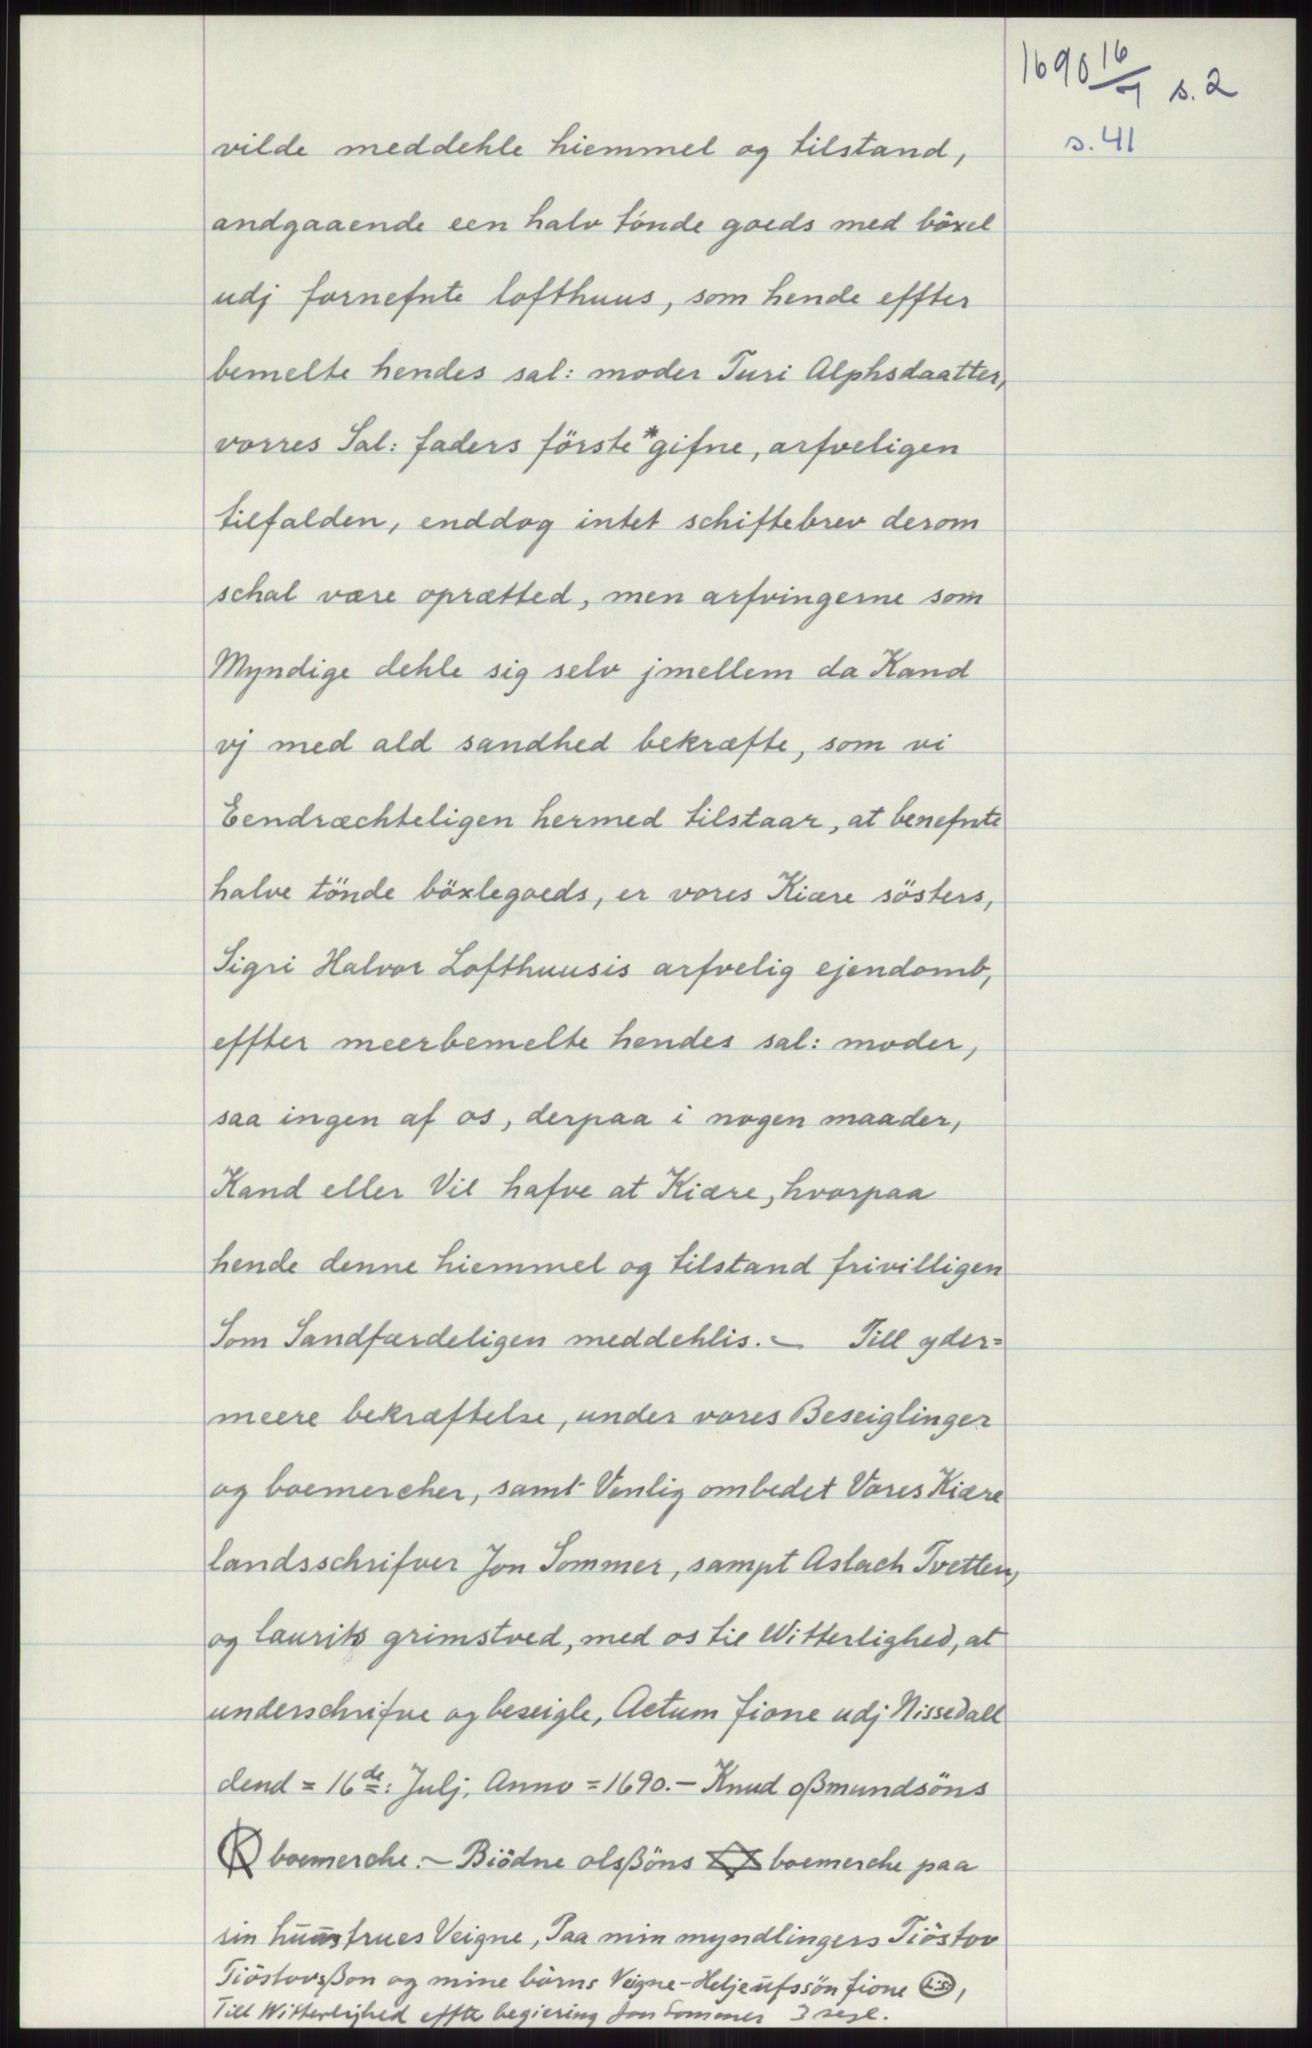 1690 16/7 s. 2
s. 41
vilde meddehle hiemmel og tilstand,
andgaaende een halv tönde goeds med böxel
udj fornefnte lofthuus, som hende effter
bemelte hendes sal: moder Turi Alphsdaatter,
vorres Sal: faders förste *gifne, arfveligen
tilfalden, enddog intet schiftebrev derom
schal være oprætted, men arfvingerne som
Myndige dehle sig selv jmellem da Kand
vj med ald sandhed bekræfte, som vi
Eendræchteligen hermed tilstaar, at benefnte
halve tönde böxlegoeds, er vores Kiære sösters,
Sigri Halvor Lofthuusis arfvelig ejendomb,
effter meerbemelte hendes sal: moder,
saa ingen af os, derpaa i nogen maader,
Kand eller Vil hafve at Kiære, hvorpaa
hende denne hiemmel og tilstand frivilligen
Som Sandfærdeligen meddehlis. – Till yder=
meere bekræftelse, under vores Beseiglinger
og boemercher, samt Venlig ombedet Vores Kiære
landsschrifver Jon Sommer, sampt Aslach Tvetten,
og laurits grimstved, med os til Witterlighed, at
underschrifve og beseigle, Actum fione udj Nissedall
dend = 16de: Julj, Anno = 1690. – Knud oßmundsöns
K boemerche. – Biödne olsßöns boemerche paa
sin huustrues Veigne, Paa min myndlingers Tiöstov
Tiöstovsßon og mine börns Veigne – Heljeufssön fione L.S.,
Till Witterlighed effte begiering Jon Sommer 3 segl.